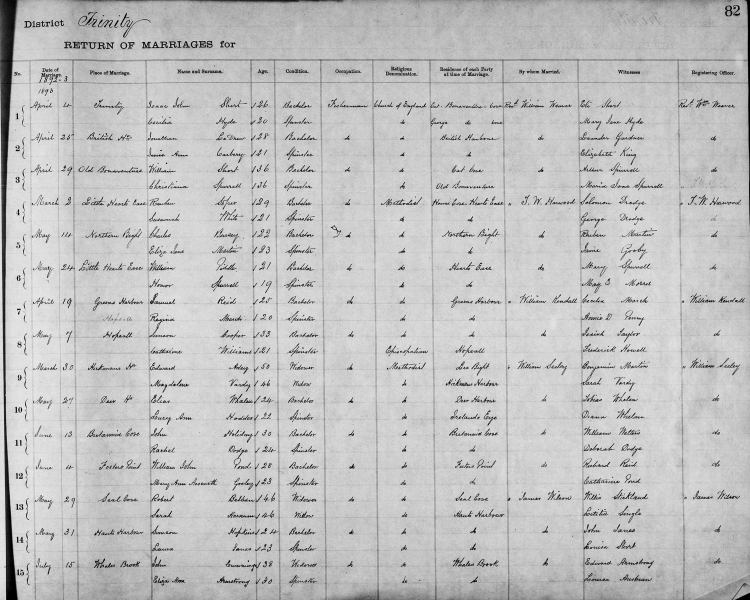 82
District Trinity
RETURN OF MARRIAGES for
No. Date of Marriage. Place of Marriage. Name and Surname. Age. Condition. Occupation. Religious Denomination. Residence of each Party at time of Marriage. By whom Married. Witnesses Registering Officer.
1892-3
1893
1 April 4 Trinity Isaac John Short 26 Bachelor Fisherman Church of England Old Bonaventure Cove Revd. William Weaver Eli Short Revd. Wm Weaver
Cecilia Hyde 20 Spinster do George do cove Mary Jane Hyde
2 April 25 British Hr Jonathan 28 Bachelor do do British Harbour do Leander Gardner do
Ann 21 Spinster do do Elizabeth King
3 April 29 Old Bonaventure William Short 36 Bachelor do do Cat Cove do Arthur Spurrell do
Christiana Spurrell 36 Spinster do Old Bonaventure Maria Jane Spurrell
4 March 2 Little Hearts Ease 29 Bachelor do Methodist Hearts Ease " T. W. Harwood Solomon Drodge " T. W. Harwood
Susannah White 21 Spinster do do George Drodge
5 May 14 Northern Bight Charles 22 Bachelor do do Northern Bight do Reuben Martin do
Eliza Jane Martin 23 Spinster do do
6 May 24 Little Hearts Ease William 21 Bachelor do do Hearts Ease do Mary Spurrell do
Honor Spurrell 19 Spinster do do May
7 April 19 Greens Harbour Samuel Reid 25 Bachelor do do Greens Harbour " William Kendall Cecilia March " William Kendall
Hopeall Regina March 20 Spinster do do Annie D Penny
8 May 7 Hopeall Simeon Cooper 33 Bachelor do do do do Josiah Taylor do
Catharine Williams 21 Spinster Episcopalian Hopeall Frederick Howell
9 March 30 Hickmans Hr Edward 50 Widower do Methodist Lee Bight " William Seeley Benjamin Martin " William Seeley
Magdalene Vardy 46 Widow do Hickmans Harbour Sarah Vardy
10 May 27 Deer Hr Elias Whalen 24 Bachelor do do Deer Harbour do Tobias Whalen do
Ann 22 Spinster do Irelands Eye Diana Whalen
11 June 13 Britannia Cove John Holiday 30 Bachelor do do Britannia Cove do William do
Rachel Dodge 24 Spinster do do Deborah Dodge
12 June 4 Fosters Point William John Pond 28 Bachelor do do Fosters Point do Richard Reid do
Mary Ann 23 Spinster do do Catharine Pond
13 May 29 Seal Cove Robert 46 Widower do do Seal Cove " James Wilson Willis Stickland " James Wilson
Sarah 46 Widow do Hants Harbour Letitia
14 May 31 Hants Harbour Simeon Hopkins 24 Bachelor do do do do John Janes do
Laura Janes 23 Spinster do do Louisa Short
15 July 15 Whales Brook John Cummings 38 Widower do do Whales Brook do Edward Armstrong do
Eliza Ann Armstrong 30 Spinster do do Louisa